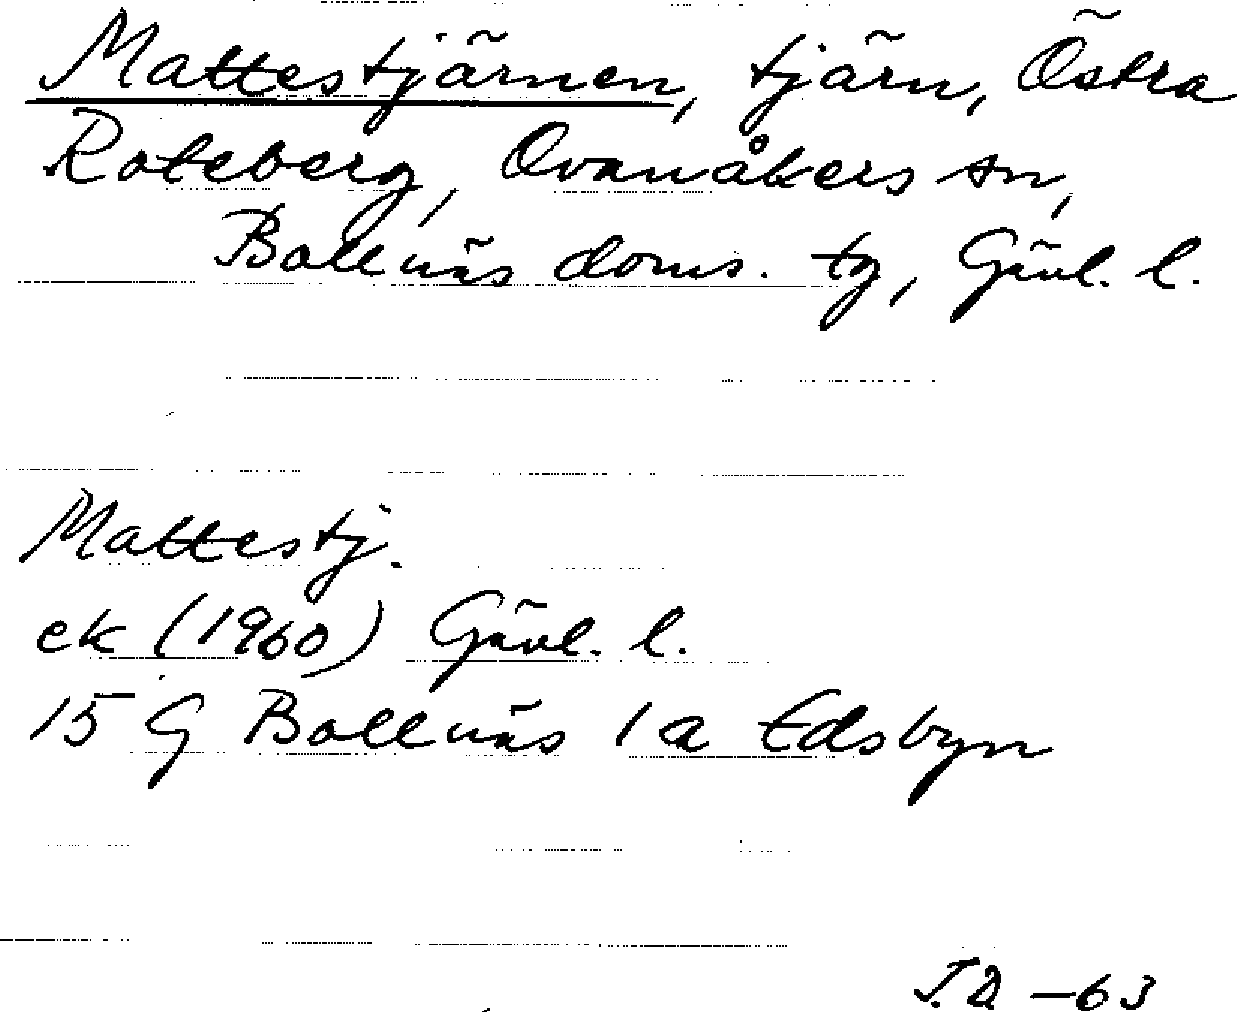 Mattestjärnen, tjärn, Östra
Roteberg, Ovanåkers sn,
Bollnäs doms. tg, Gävl. l.
Mattestj.
ek (1960) Gävl. l.
15 G Bollnäs 1a Edsbyn
-63